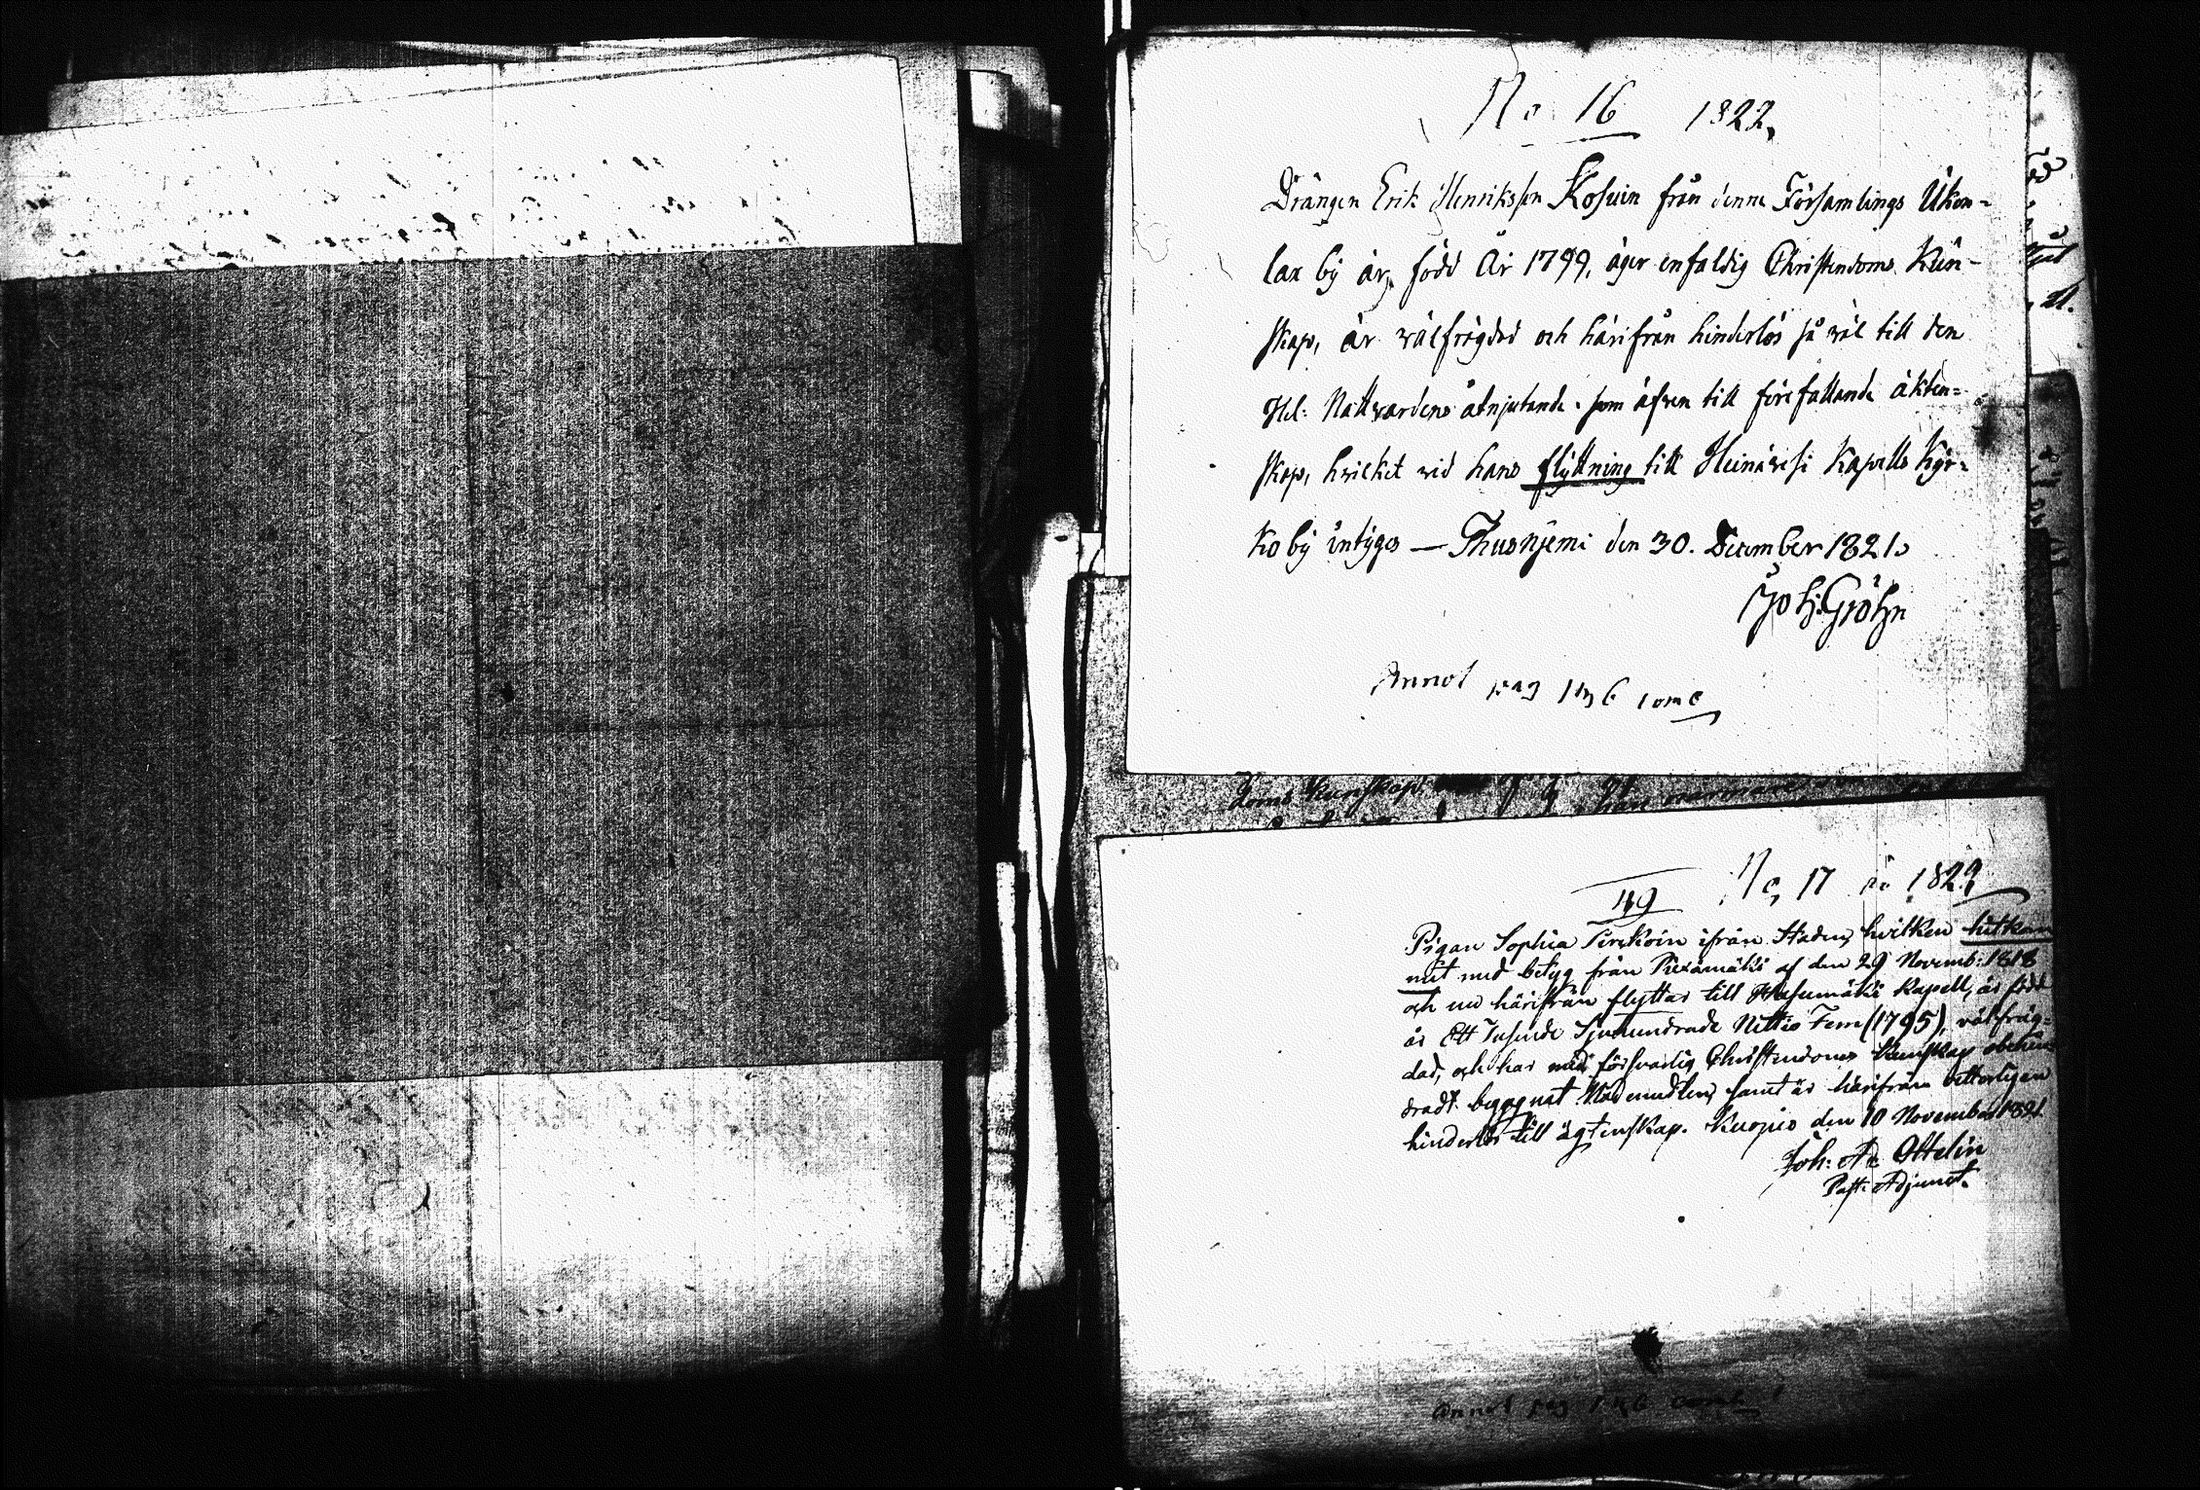 No 16 1822,
Drängen Erik Henriksson Kosuin från denna Församlings Ukon-
lax by är, född År 1799, äger enfaldig Christendoms Kun-
skap, är välfrägdad och härifrån hinderlös så väl till den
Hel: Nattvardens åtnjutande, som äfven till förefallande äkten-
skap, hvilket vid hans flyttning till Heinävesi Kapells Kyr-
ko by intygas — Thusnjemi den 30. December 1821.
Joh: Gröhn
Annot pag 146
doms kunskap.
No 17 1822
49
Pigan Sophia ifrån Staden, hvilken hitkom
mit med betyg från Piexämäki af den 29 Novemb: 1818
och nu härifrån flyttar till Kapell, är född
år Ett Tusende Sjuhundrade Nittio Fem (1795), välfräg-
dad, och har med försvarlig Christendoms Kunskap obehin-
dradt begagnat Nådemedlen, samt är härifrån vitterligen
hinderlös till ägtenskap. Kuopio den 10 November 1821.
Joh: Ad: Ottelin
Past: Adjunct.
Annot pag 146